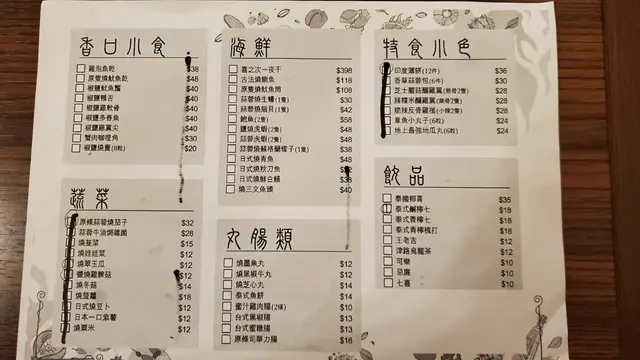 香口小食
雞泡魚乾 $38
原隻燒魷魚乾 $48
椒鹽魷魚鬚 $40
椒鹽鴨舌 $40
椒鹽雞軟骨 $40
椒鹽多春魚 $40
椒鹽雞翼尖 $40
蟹肉咖喱角 $30
椒鹽燒賣(8粒) $20
蔬菜
原條蒜蓉燒茄子 $32
蒜蓉牛油焗雜菌 $28
燒韮菜 $15
燒娃娃菜 $12
燒翠玉瓜 $12
醬燒雞髀菇 $12
燒冬菇 $14
燒菠蘿 $18
日式燒豆卜 $12
日本一口紫薯 $12
燒粟米 $12
海鮮
喜之次一夜干 $398
古法燒鰻魚 $118
原隻燒魷魚筒 $108
蒜蓉燒生蠔(1隻) $30
蒜蓉燒扇貝(1隻) $42
鮑魚(2隻) $58
鹽燒虎蝦(2隻) $48
蒜蓉虎蝦(2隻) $48
蒜蓉燒蘇格蘭蟶子(1隻) $38
日式燒青魚 $48
日式燒秋刀魚
日式燒鮮白鱔 $38
燒三文魚頭 $40
丸腸類
燒墨魚丸 $12
燒黑椒牛丸 $12
燒芝心丸 $14
泰式魚餅 $14
蜜汁雞肉腸(2條) $10
台式黑椒腸 $13
台式蜜糖腸 $13
原條司華力腸 $16
特食小色
印度薄餅(12件) $36
香草蒜蓉包(6件) $30
芝士蘑菇釀雞翼(無骨2隻) $28
辣糯米釀雞翼(無骨2隻) $28
脆辣反骨雞槌(小辣2隻) $28
章魚小丸子(6粒) $24
地上最強地瓜丸(6粒) $24
飲品
泰國椰青 $35
泰式鹹檸七 $18
泰式青檸七 $18
泰式青檸梳打 $18
王老吉 $12
津路烏龍茶 $12
可樂 $10
忌廉 $10
七喜 $10